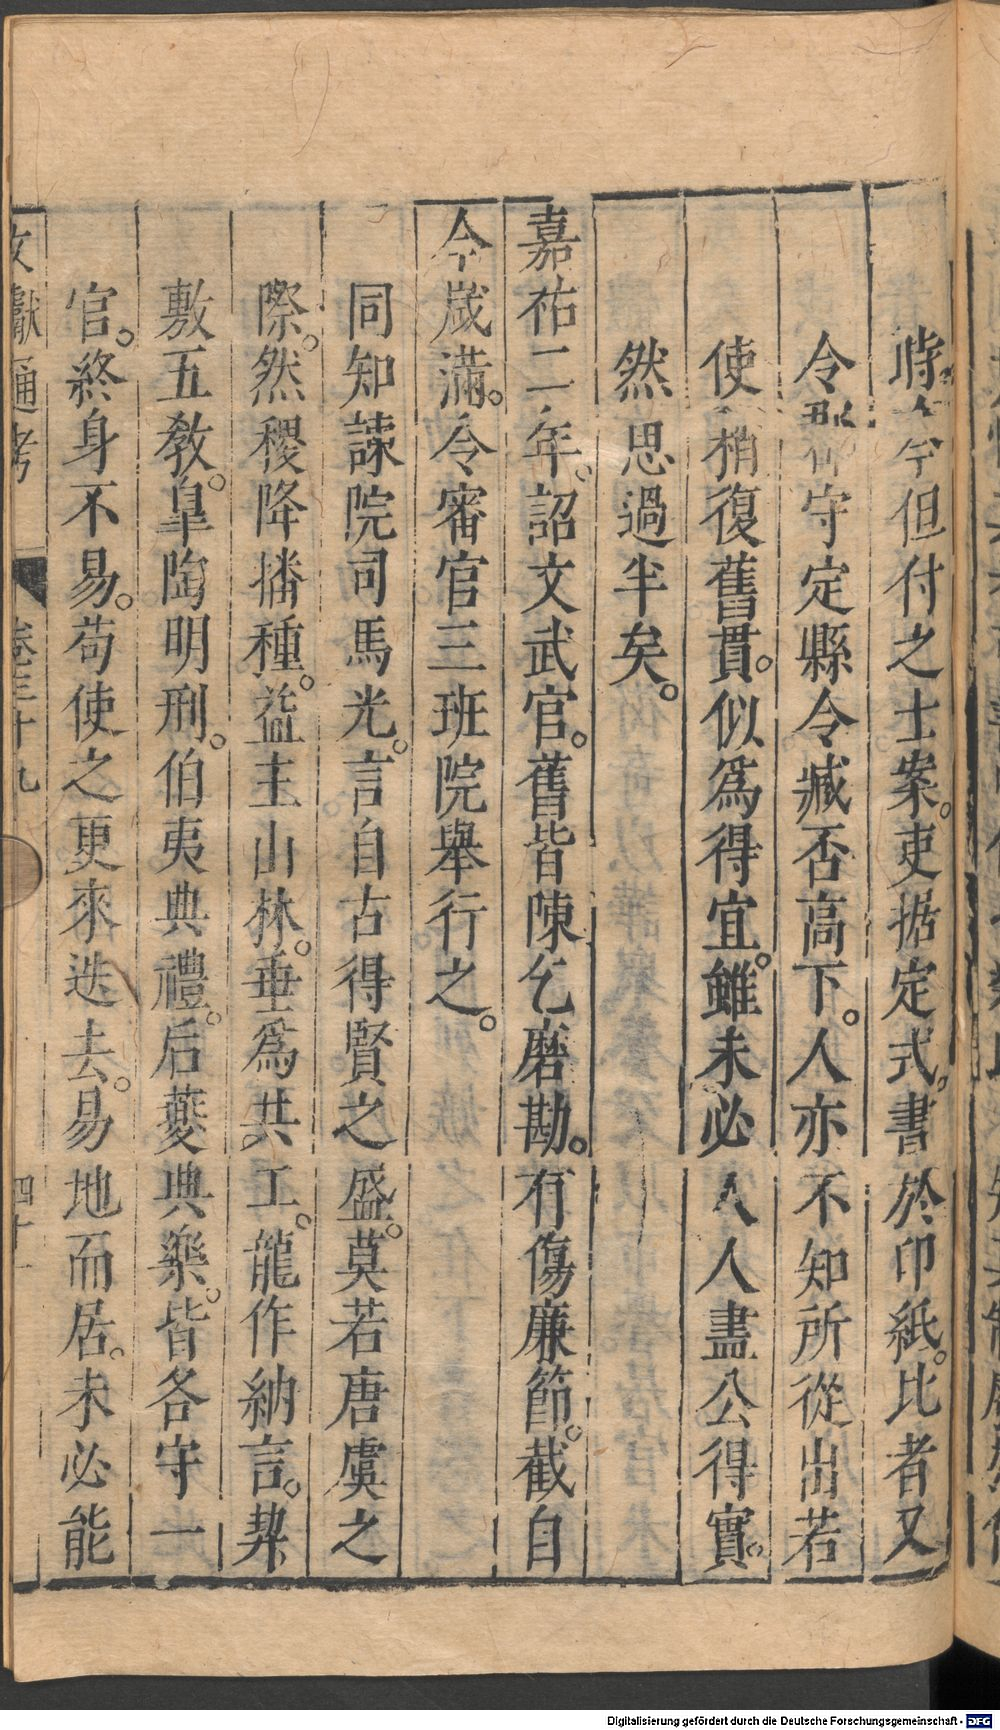 時今但付之士案吏据定式書於印紙比者又
令郡守定縣令臧否高下人亦不知所從出若
使稍復舊貫似爲得宜雖未必人人盡公得實
然思過半矣
嘉祐二年詔文武官舊皆陳乞磨勘有傷廉節截自
今歳滿令審官三班院舉行之
同知諫院司馬光言自古得賢之盛莫若唐虞之
際然稷降播種益主山林垂爲共工龍作納言契
敷五教皐陶明刑伯夷典禮后夔典樂皆各守一
官終身不易苟使之更來迭去易地而居未必能
文獻通考 卷三十九 四十一
Digitalisierung gefördert durch die Deutsche Forschungsgemeinschaft - DFG